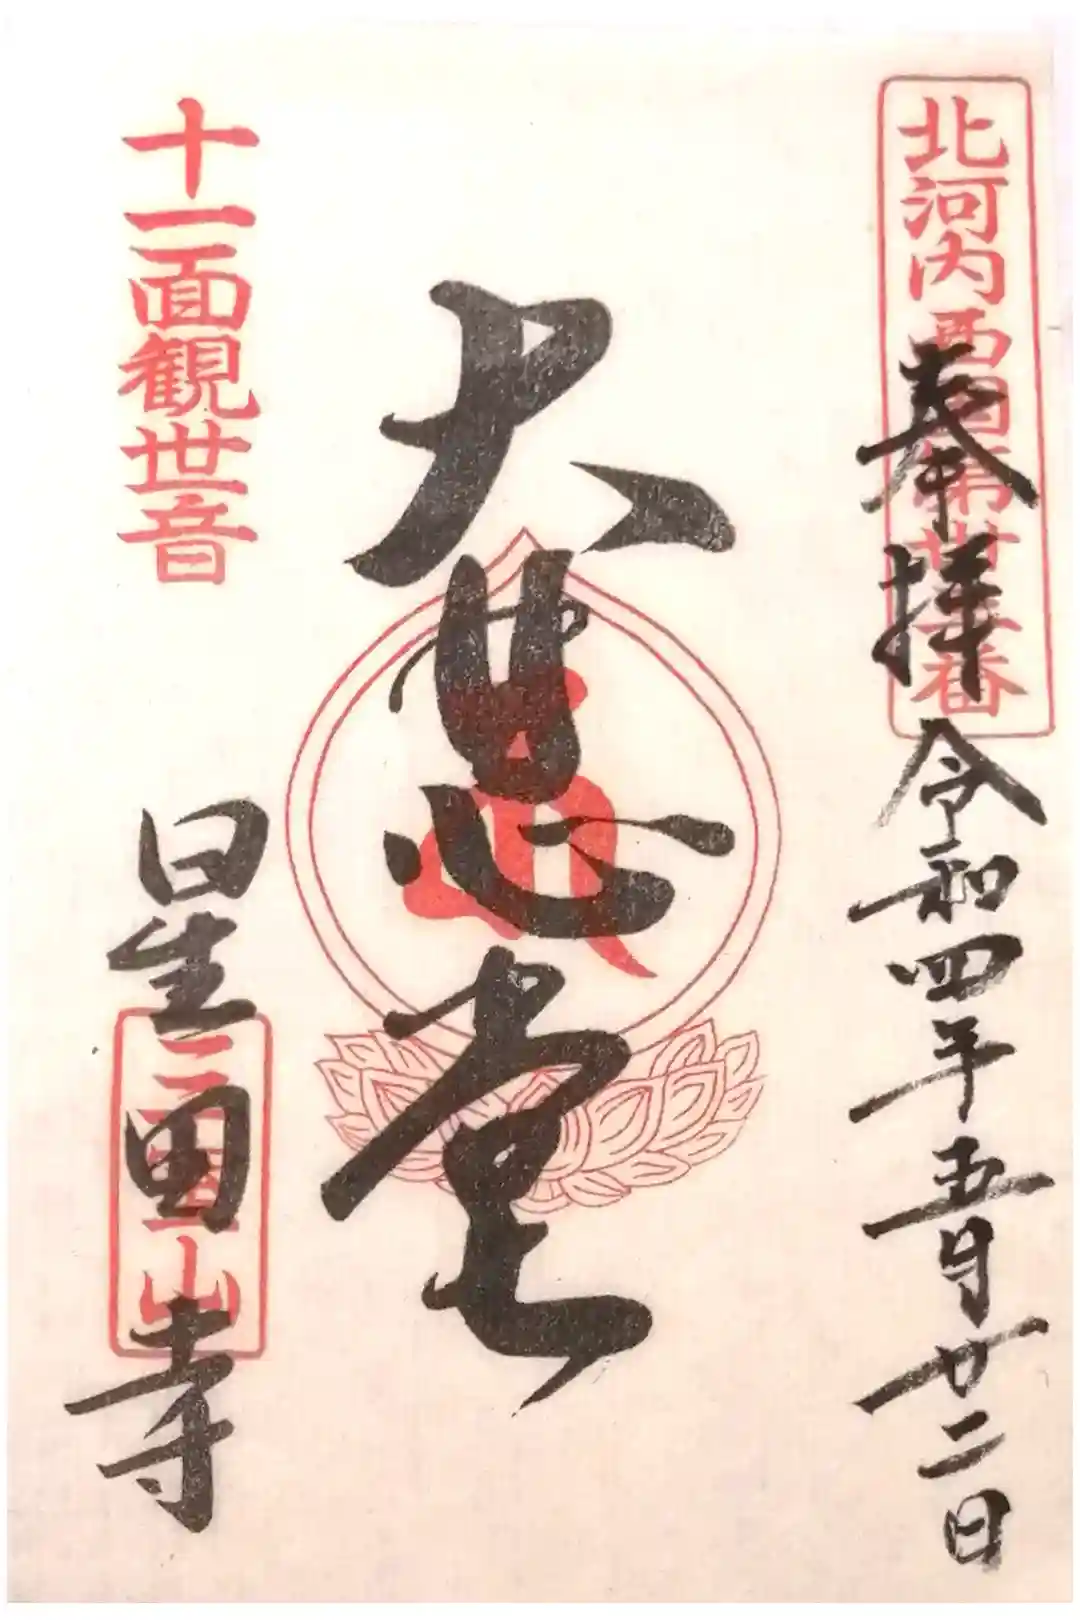 北河内西国第
番
奉拝
令和四年五月廿二日
大悲堂
十一面観世音
星田寺